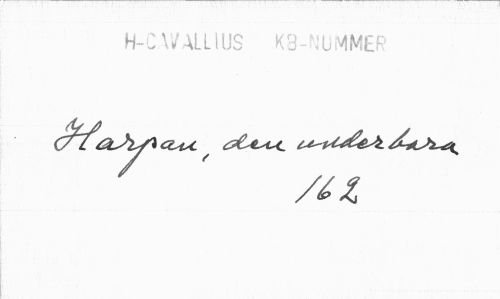 H-CAVALLIUS KB-NUMMER
Harpan, den underbara
162